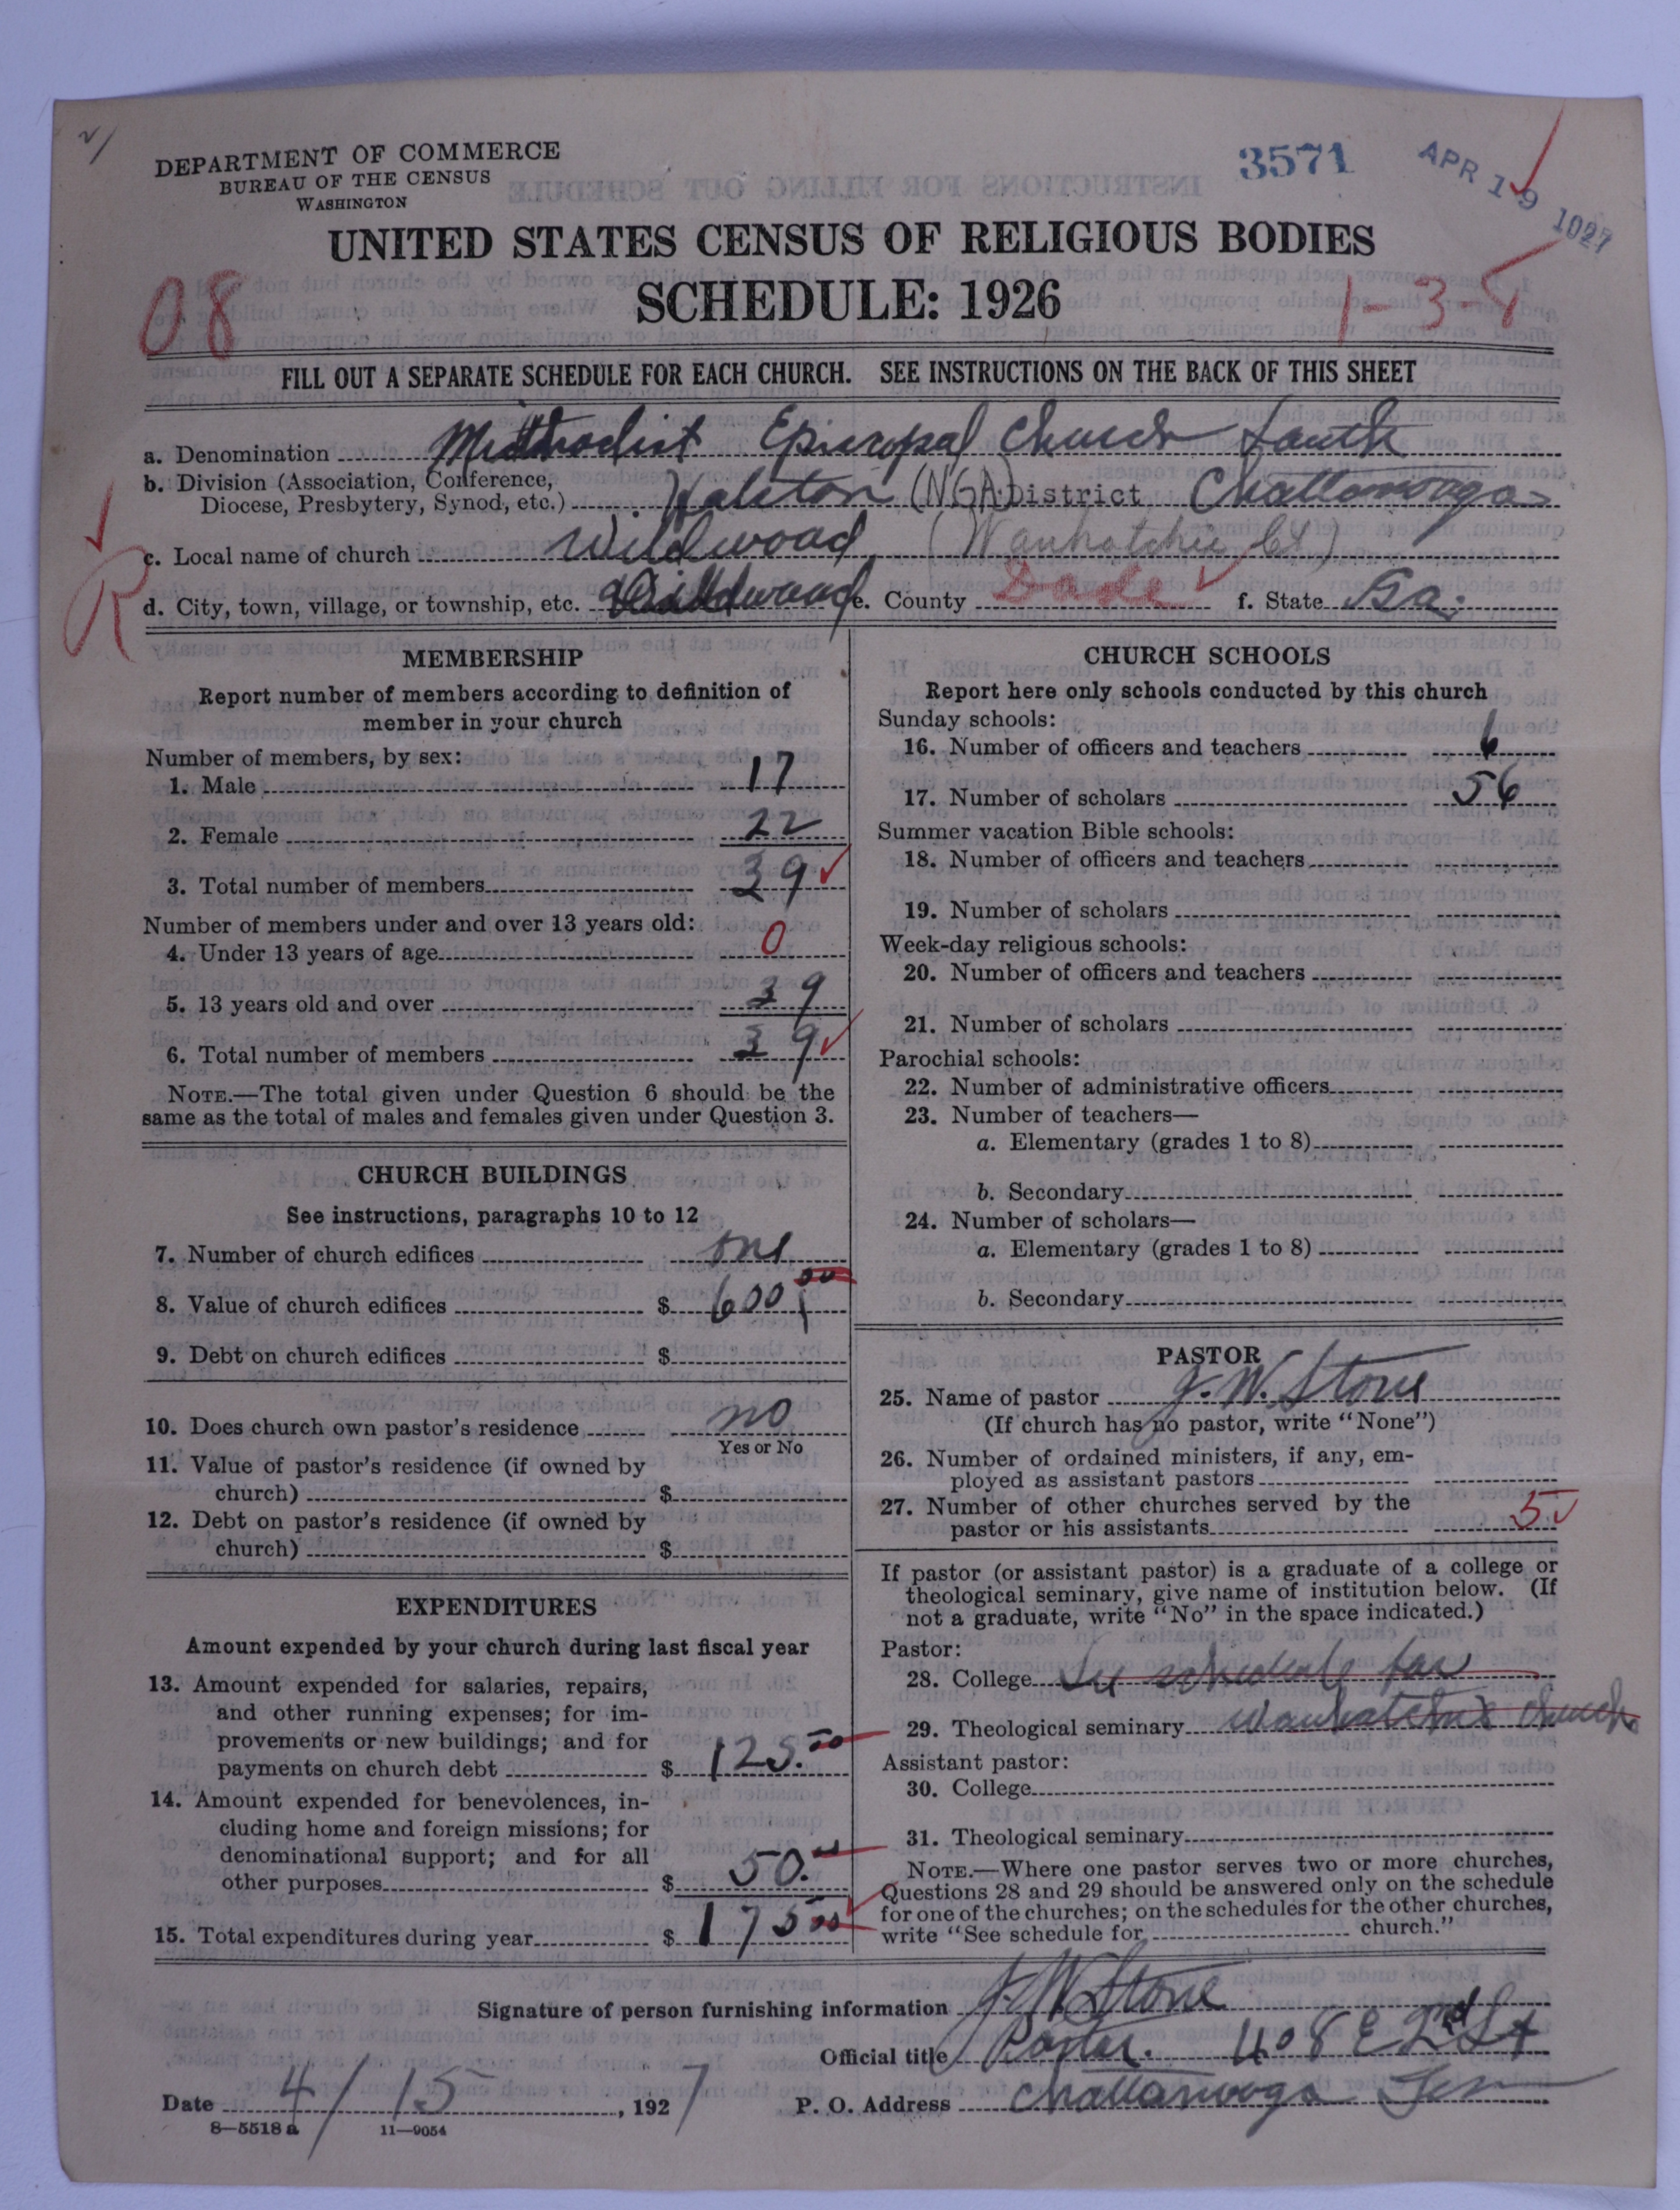 DEPARTMENT OF COMMERCE
BUREAU OF THE CENSUS
WASHINGTON
3571
APR 19 1927
UNITED STATES CENSUS OF RELIGIOUS BODIES
SCHEDULE: 1926
08
1-3-
FILL OUT A SEPARATE SCHEDULE FOR EACH CHURCH. SEE INSTRUCTIONS ON THE BACK OF THIS SHEET
a. Denomination Methodist Episcopal Church South
b. Division (Association, Conference,
Diocese, Presbytery, Synod, etc.) Holston (NGA) District Chattanooga
c. Local name of church Wildwood (Wauhatchie Ct)
R
d. City, town, village, or township, etc. Wildwood e. County Dade f. State Ga.
MEMBERSHIP
Report number of members according to definition of
member in your church
Number of members, by sex:
1. Male 17
2. Female 22
3. Total number of members 39
Number of members under and over 13 years old:
4. Under 13 years of age 0
5. 13 years old and over 39
6. Total number of members 39
NOTE.—The total given under Question 6 should be the
same as the total of males and females given under Question 3.
CHURCH BUILDINGS
See instructions, paragraphs 10 to 12
7. Number of church edifices one
8. Value of church edifices $ 600 00
9. Debt on church edifices $
10. Does church own pastor's residence no
Yes or No
11. Value of pastor's residence (if owned by
church) $
12. Debt on pastor's residence (if owned by
church) $
EXPENDITURES
Amount expended by your church during last fiscal year
13. Amount expended for salaries, repairs,
and other running expenses; for im-
provements or new buildings; and for
payments on church debt $ 125.00
14. Amount expended for benevolences, in-
cluding home and foreign missions; for
denominational support; and for all
other purposes $ 50.00
15. Total expenditures during year $ 175 00
CHURCH SCHOOLS
Report here only schools conducted by this church
Sunday schools:
16. Number of officers and teachers 6
17. Number of scholars 56
Summer vacation Bible schools:
18. Number of officers and teachers
19. Number of scholars
Week-day religious schools:
20. Number of officers and teachers
21. Number of scholars
Parochial schools:
22. Number of administrative officers
23. Number of teachers—
a. Elementary (grades 1 to 8)
b. Secondary
24. Number of scholars—
a. Elementary (grades 1 to 8)
b. Secondary
PASTOR
25. Name of pastor J. W. Stone
(If church has no pastor, write "None")
26. Number of ordained ministers, if any, em-
ployed as assistant pastors
27. Number of other churches served by the
pastor or his assistants 5
If pastor (or assistant pastor) is a graduate of a college or
theological seminary, give name of institution below. (If
not a graduate, write "No" in the space indicated.)
Pastor:
28. College See schedule for
29. Theological seminary Wauhatchie Church
Assistant pastor:
30. College
31. Theological seminary
NOTE.—Where one pastor serves two or more churches,
Questions 28 and 29 should be answered only on the schedule
for one of the churches; on the schedules for the other churches,
write "See schedule for church."
Signature of person furnishing information J. W. Stone
Official title Pastor. 408 E 2nd St
Date 4/15, 1927 P. O. Address Chattanooga Tenn
8—5518 a 11—9054